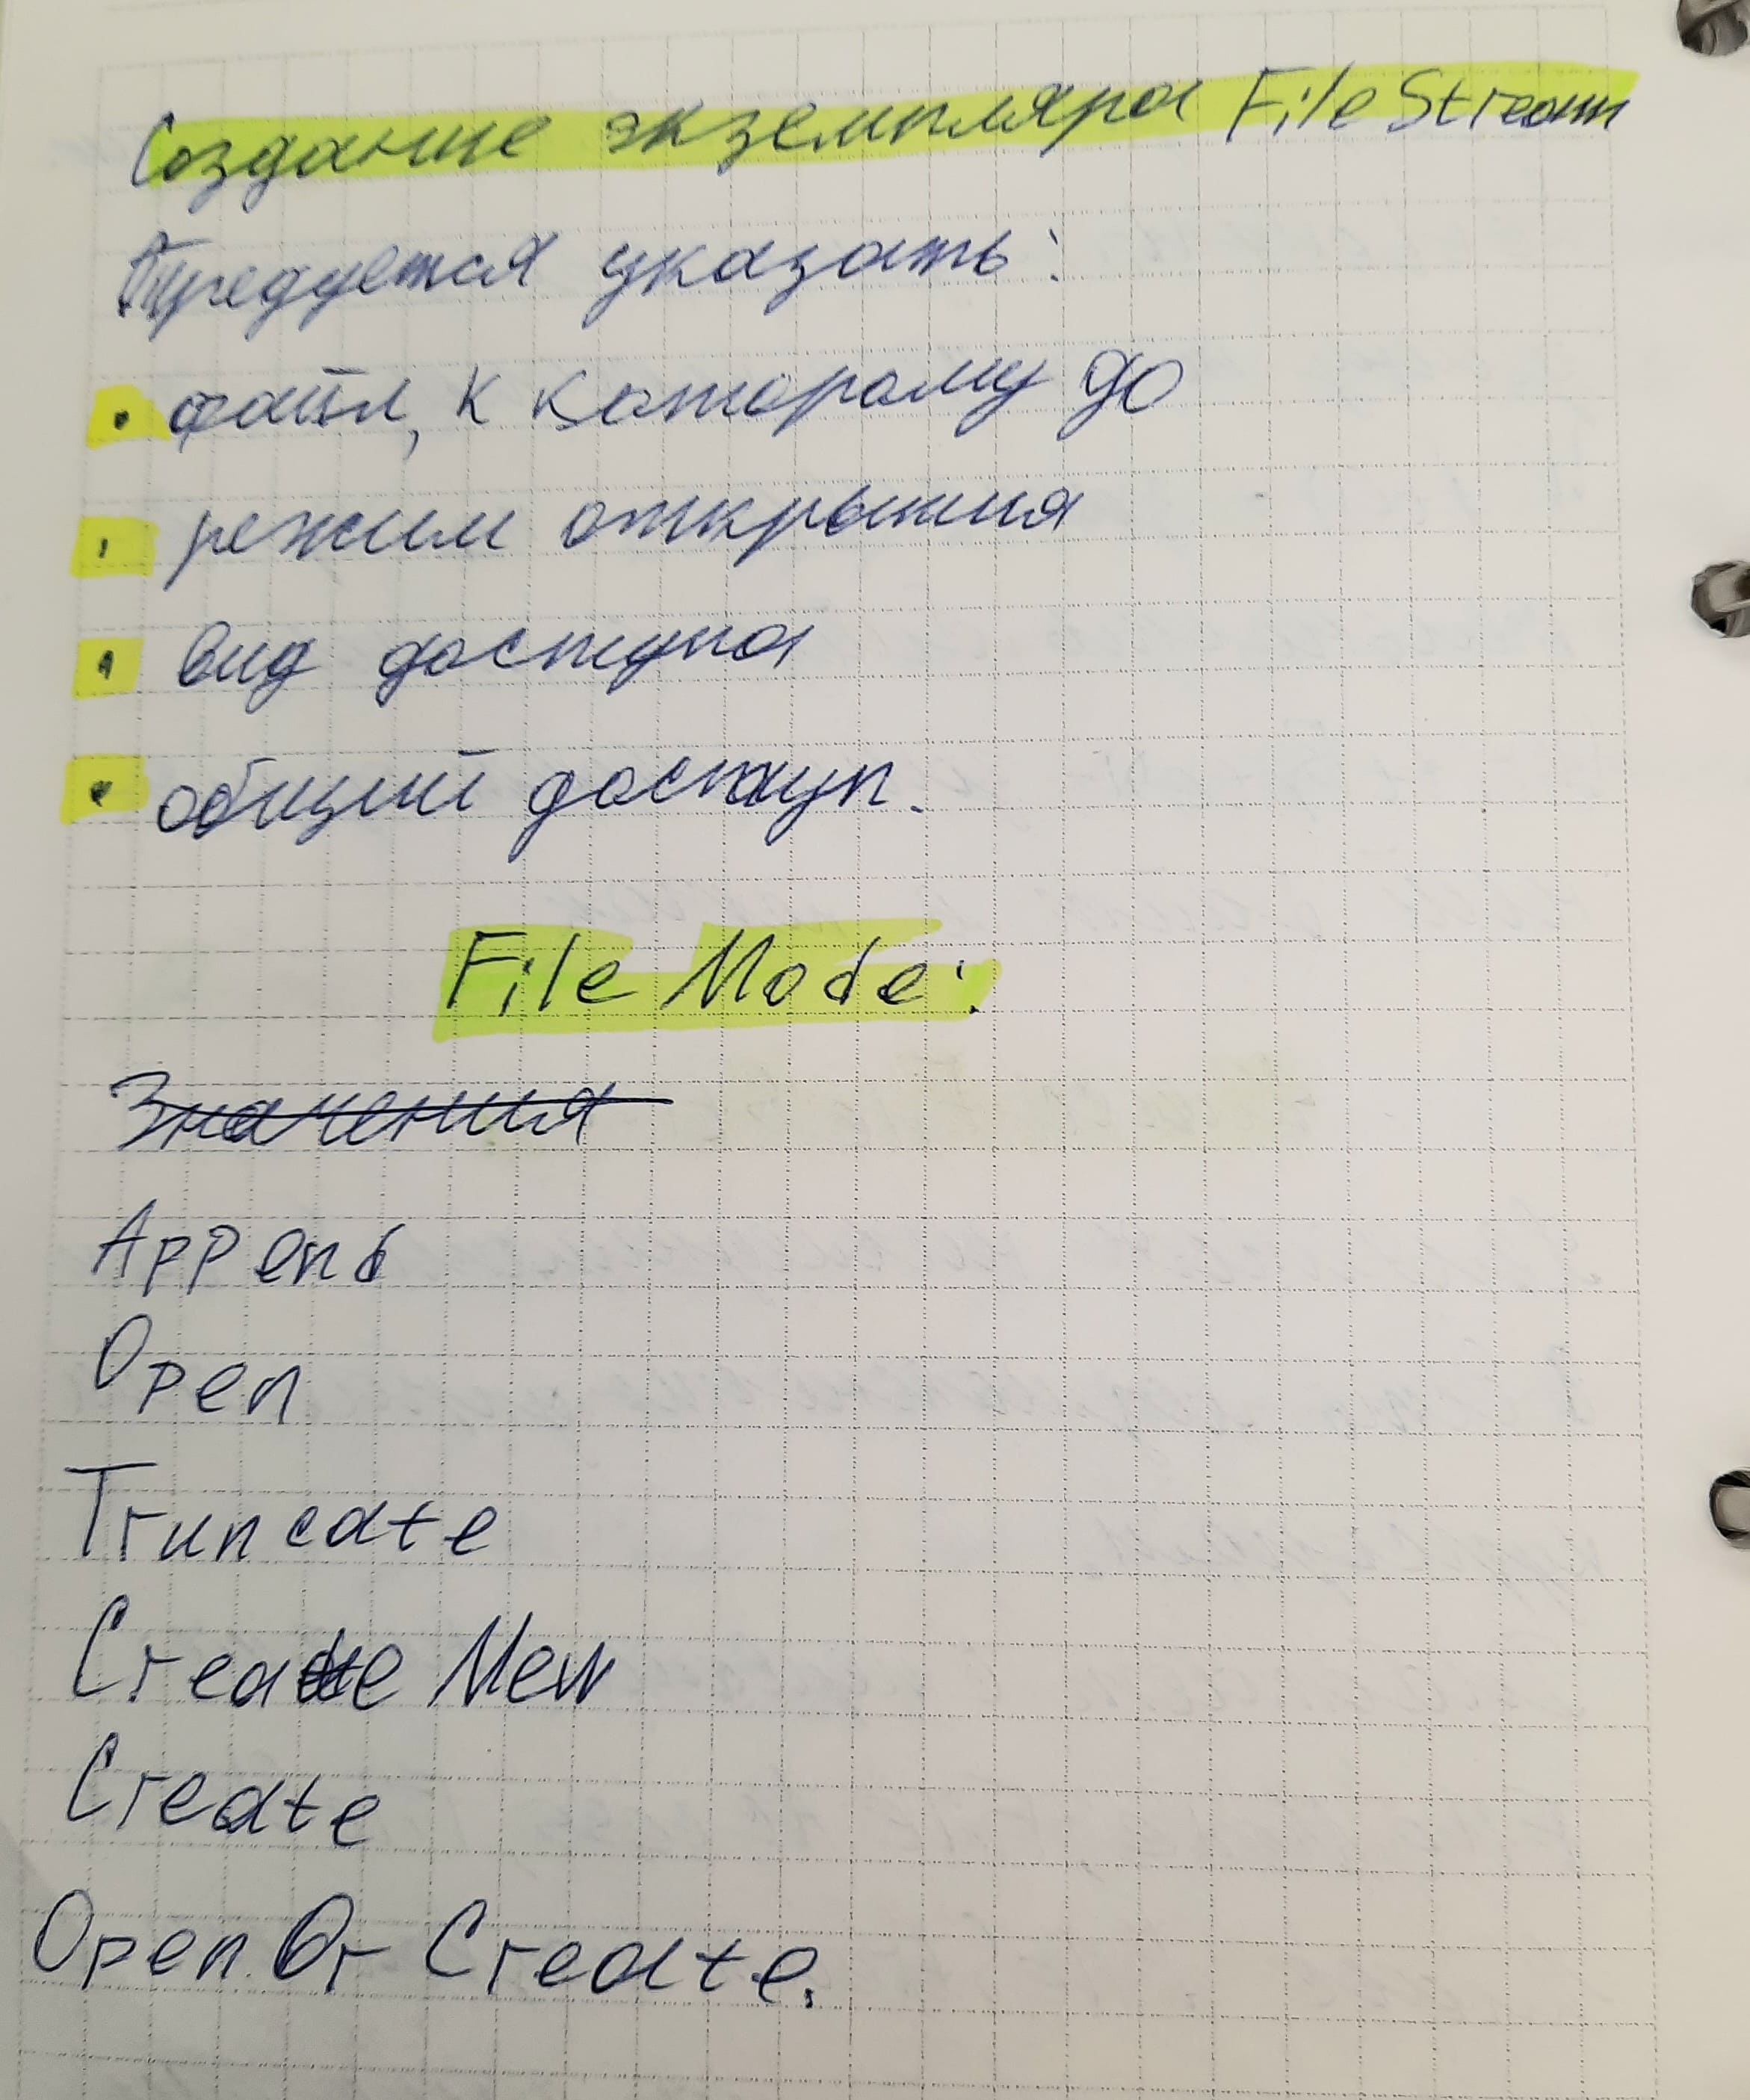 Создание экземпляра FileStream
Требуется указать:
• файл, к которому до
• режим открытия
• вид доступа
• общий доступ.
File Mode:
Значения
Append
Open
Truncate
Create New
Create
Open Or Create.